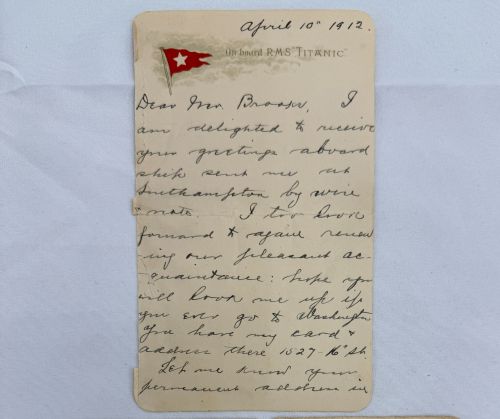 April 10th 1912.
On board R.M.S. "TITANIC"
Dear Mrs. Brooks, I
am delighted to receive
your greetings aboard
ship sent me at
Southampton by wire
& note. I too look
forward to again renew
-ing our pleasant ac-
quaintance: hope you
will look me up if
you ever go to Washington
You have my card &
address there 1527-16th St.
Let me know your
permanent address in